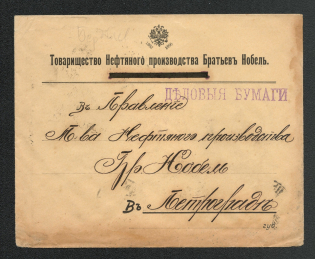 Товарищество Нефтяного производства Братьевъ Нобель.
ДѢЛОВЫЯ БУМАГИ
въ Правленіе
Т-ва Нефтяного производства
Бр Нобель
Въ Петроградъ